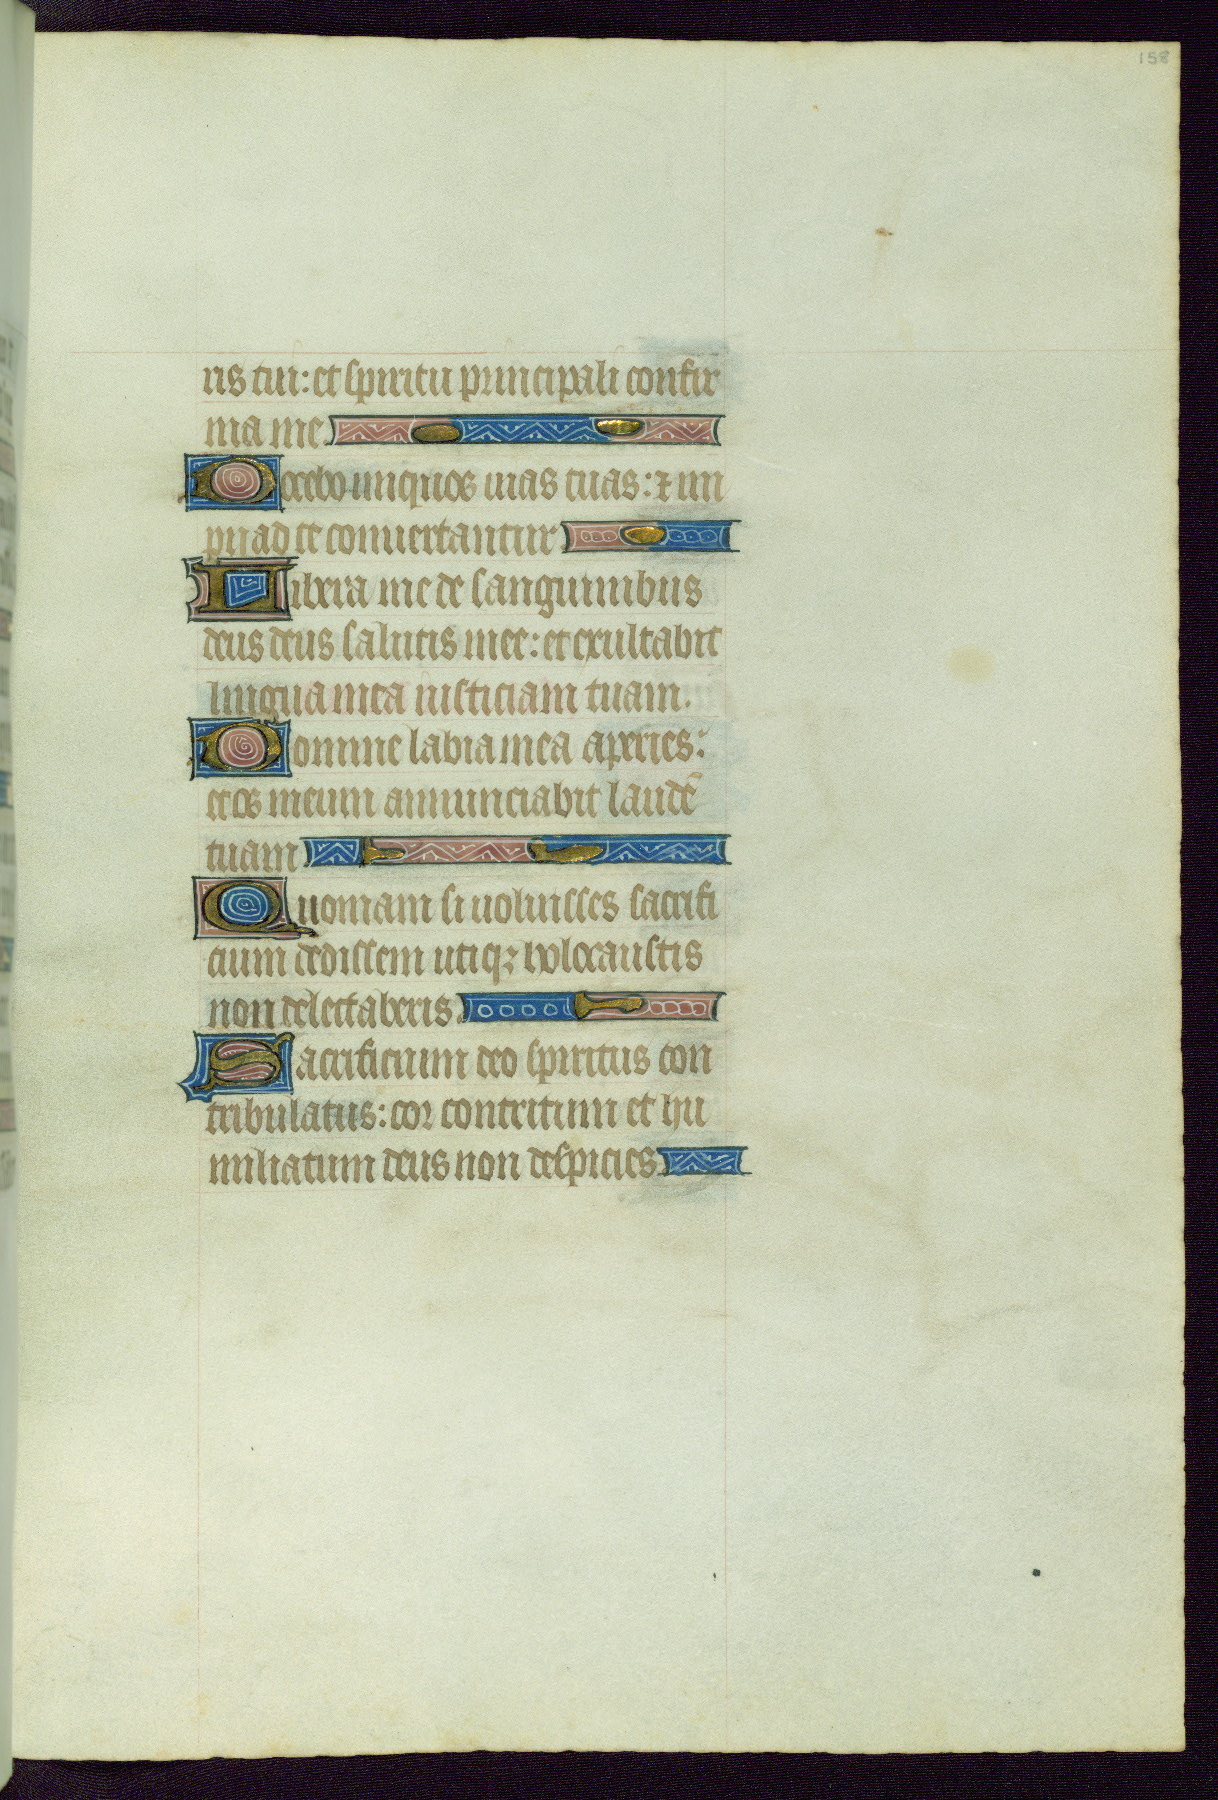 158
ris tui: et spiritu principali confir
ma me.
Docebo iniquos uias tuas: ⁊ im
pii ad te conuertantur
Libera me de sanguinibus
deus deus salutis mee: et exultabit
lingua mea iusticiam tuam.
Domine labia mea aperies:
et os meum annunciabit laudē
tuam
Quoniam si uoluisses sacrifi
cium dedissem utiqꝫ holocaustis
non delectaberis.
Sacrificium deo spiritus con
tribulatus: cor contritum et hu
miliatum deus non despicies.